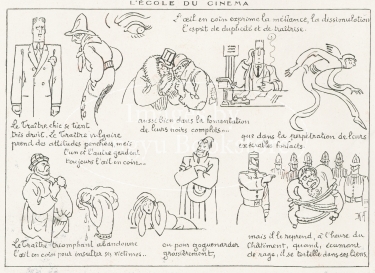 L'ÉCOLE DU CINÉMA
L'œil en coin exprime la méfiance, la dissimulation
l'esprit de duplicité et de traîtrise.
Le Traître chic se tient
très droit. Le Traître vulgaire
prend des attitudes penchées mais
l'un et l'autre gardent
toujours l'œil en coin...
aussi bien dans la fomentation
de leurs noirs complots...
que dans la perpétration de leurs
exécrables forfaits
Le Traître Triomphant abandonne
l'œil en coin pour insulter ses victimes...
ou pour goguenarder
grossièrement,
mais il le reprend, à l'heure du
Châtiment, quand, écumant
de rage, il se tortille dans ses liens.